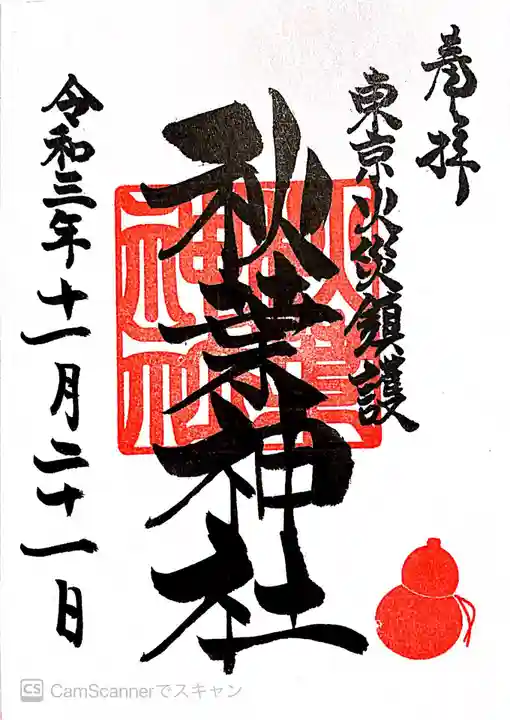 奉拝
東京火災鎮護
秋葉神社
秋葉神社
令和三年十一月二十一日
CS CamScannerでスキャン